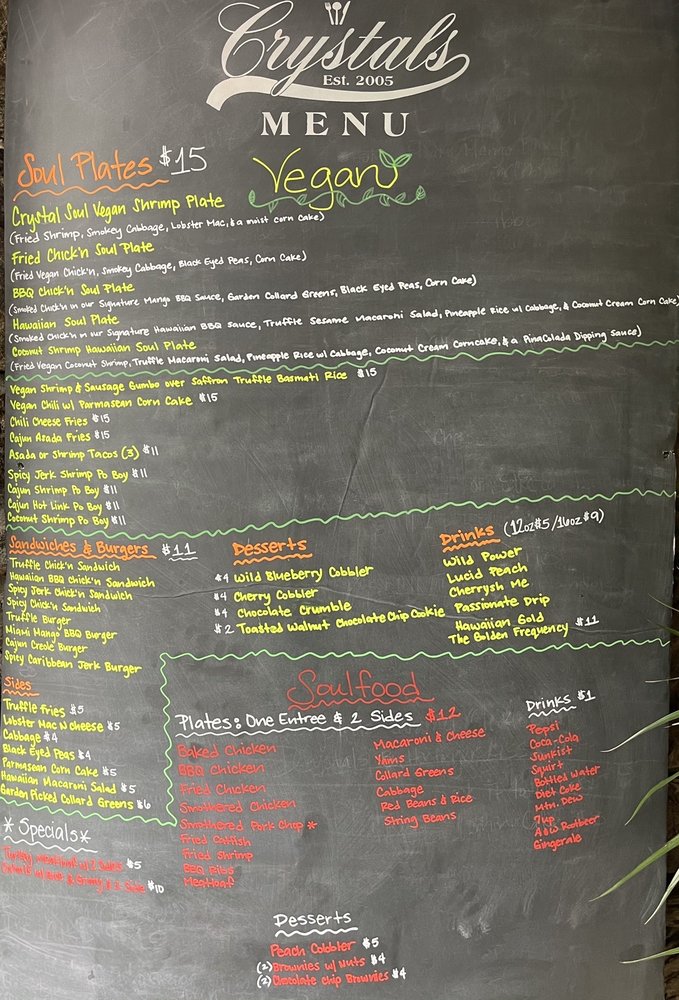 Crystals
Est. 2005
MENU
Soul Plates $15
Vegan
Crystal Soul Vegan Shrimp Plate
(Fried Shrimp, Smokey Cabbage, Lobster Mac, & a moist corn Cake)
Fried Chick'n Soul Plate
(Fried Vegan Chick'n, Smokey Cabbage, Black Eyed Peas, Corn Cake)
BBQ Chick'n Soul Plate
(Smoked Chick'n in our Signature Mango BBQ Sauce, Garden Collard Greens, Black Eyed Peas, Corn Cake)
Hawaiian Soul Plate
(Smoked Chick'n in our Signature Hawaiian BBQ Sauce, Truffle Sesame Macaroni Salad, Pineapple Rice w/ Cabbage, & Coconut Cream Corn Cake)
Coconut Shrimp Hawaiian Soul Plate
(Fried Vegan Coconut Shrimp, Truffle Macaroni Salad, Pineapple Rice w/ Cabbage, Coconut Cream Corncake, & a PinaColada Dipping Sauce)
Vegan Shrimp & Sausage Gumbo over Saffron Truffle Basmati Rice $15
Vegan Chili w/ Parmasean Corn Cake $15
Chili Cheese Fries $15
Cajun Asada Fries $15
Asada or Shrimp Tacos (3) $11
Spicy Jerk Shrimp Po Boy $11
Cajun Shrimp Po Boy $11
Cajun Hot Link Po Boy $11
Coconut Shrimp Po Boy $11
Sandwiches & Burgers $11
Truffle Chick'n Sandwich
Hawaiian BBQ Chick'n Sandwich
Spicy Jerk Chick'n Sandwich
Spicy Chick'n Sandwich
Truffle Burger
Miami Mango BBQ Burger
Cajun Creole Burger
Spicy Caribbean Jerk Burger
Desserts
$4 Wild Blueberry Cobbler
$4 Cherry Cobbler
$4 Chocolate Crumble
$2 Toasted Walnut Chocolate Chip Cookie
Drinks (12oz $5 / 16oz $9)
Wild Power
Lucid Peach
Cherrysh Me
Passionate Drip
Hawaiian Gold
The Golden Frequency $11
Sides
Truffle Fries $5
Lobster Mac N Cheese $5
Cabbage $4
Black Eyed Peas $4
Parmasean Corn Cake $5
Hawaiian Macaroni Salad $5
Garden Picked Collard Greens $6
*Specials*
Turkey Meatloaf w/ 2 Sides $5
$10
Soulfood
Plates: One Entree & 2 Sides $12
Baked Chicken
BBQ Chicken
Fried Chicken
Smothered Chicken
Smothered Pork Chop *
Fried Catfish
Fried Shrimp
BBQ Ribs
Meatloaf
Macaroni & Cheese
Yams
Collard Greens
Cabbage
Red Beans & Rice
String Beans
Drinks $1
Pepsi
Coca-Cola
Sunkist
Squirt
Bottled Water
Diet Coke
Mtn. Dew
7up
A&W Rootbeer
Gingerale
Desserts
Peach Cobbler $5
(2) Brownies w/ Nuts $4
(2) Chocolate Chip Brownies $4